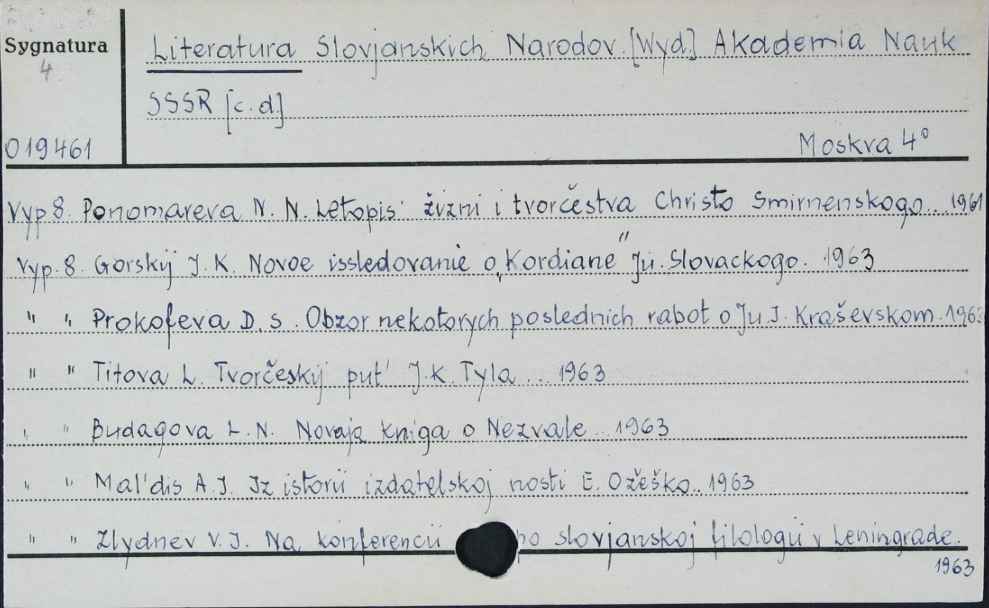 Sygnatura
4
019461
Literatura Slovjanskich Narodov. [Wyd.] Akademia Nauk
SSSR [c.d]
Moskva 4°
Vyp 8. Ponomareva N. N. Letopis' žizni i tvorčestva Christo Smirnenskogo.. 1961
Vyp. 8. Gorskij J. K. Novoe issledovanie o „Kordiane" Ju. Slovackogo. 1963
" " Prokofeva D. S. Obzor nekotorych poslednich rabot o Ju J. Kraševskom. 1963
" " Titova L. Tvorčeskij put' J.K. Tyla .. 1963
" " Budagova L. N. Novaja kniga o Nezvale .. 1963
" " Mal'dis A. J. Iz istorii izdatelskoj nosti E. Ožeško.. 1963
" " Zlydnev V. J. Na konferencii po slovjanskoj filologii v Leningrade.
1963